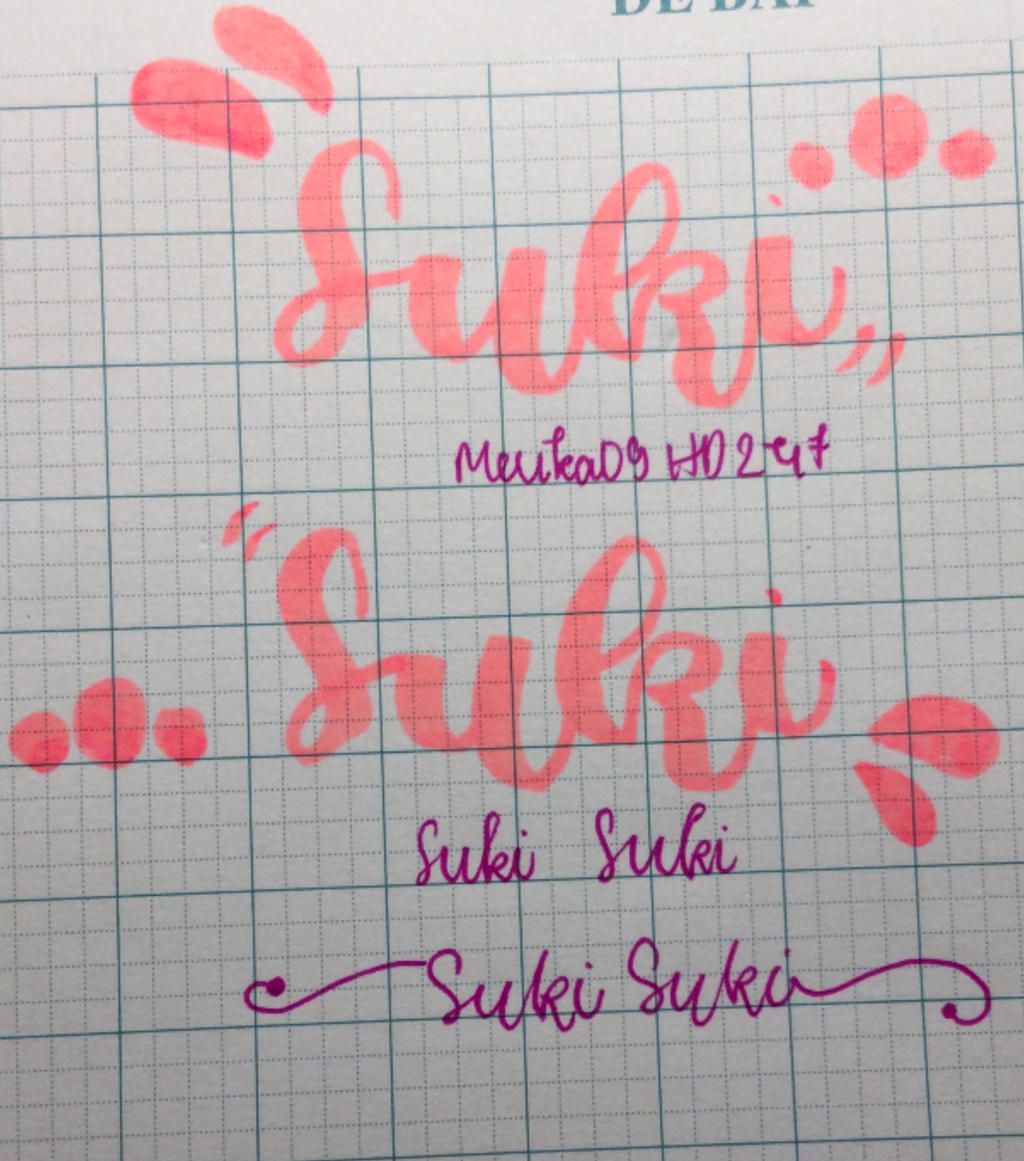 ĐỀ BÀI
Suki
"
Suki
Suki Suki
Suki Suki